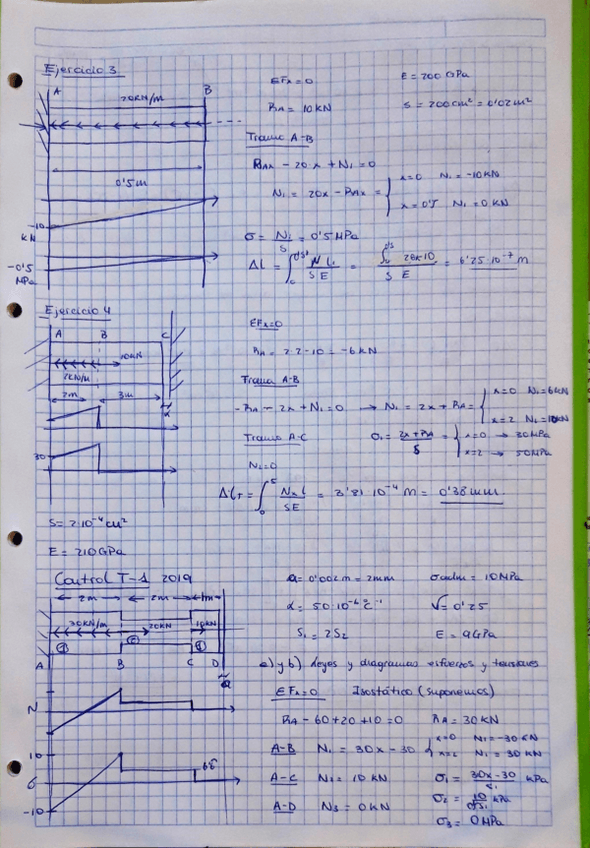 Ejercicio 3
A
20KN/m
B
0'5m
-10
KN
-0'5
MPa
EFx=0
E = 200 GPa
RA = 10KN
S = 200cm² = 0'02m²
Tramo A-B
RAx - 20·x + N₁ = 0
N₁ = 20x - RAx =
x=0 N₁ = -10KN
x=0'5 N₁ = 0KN
σ = N₁/S = 0'5MPa
= 6'25 10⁻⁷ m
Ejercicio 4
A
B
C
10KN
2KN/m
2m
3m
30
S = 2·10⁻⁴ cm²
E = 210GPa
EFx=0
RA = 2·2-10 = -6KN
Tramo A-B
-RA - 2x + N₁ = 0 → N₁ = 2x + RA =
x=0 N₁ = 6KN
x=2 N₁ = 10KN
Tramo A-C
σ₁ = (2x+RA)/S =
x=0 → 30MPa
x=2 → 50MPa
N₂=0
= 3'81 10⁻⁴ m = 0'38mm
Control T-1 2019
2m
2m
1m
30KN/m
20KN
10KN
A
B
C
D
N
10
σ
-10
a = 0'002m = 2mm
σadm = 10MPa
α = 50·10⁻⁶ ℃⁻¹
√ = 0'25
S₁ = 2S₂
E = 9GPa
a) y b) Leyes y diagramas esfuerzos y tensiones
EFx=0 Isostático (suponemos)
RA - 60+20+10=0
RA = 30KN
A-B N₁ = 30x - 30
x=0 N₁ = -30 KN
x=2 N₁ = 30 KN
A-C N₂ = 10 KN
σ₁ = 30x-30 KPa
A-D N₃ = 0KN
σ₂ = 10 KPa
σ₃ = 0MPa